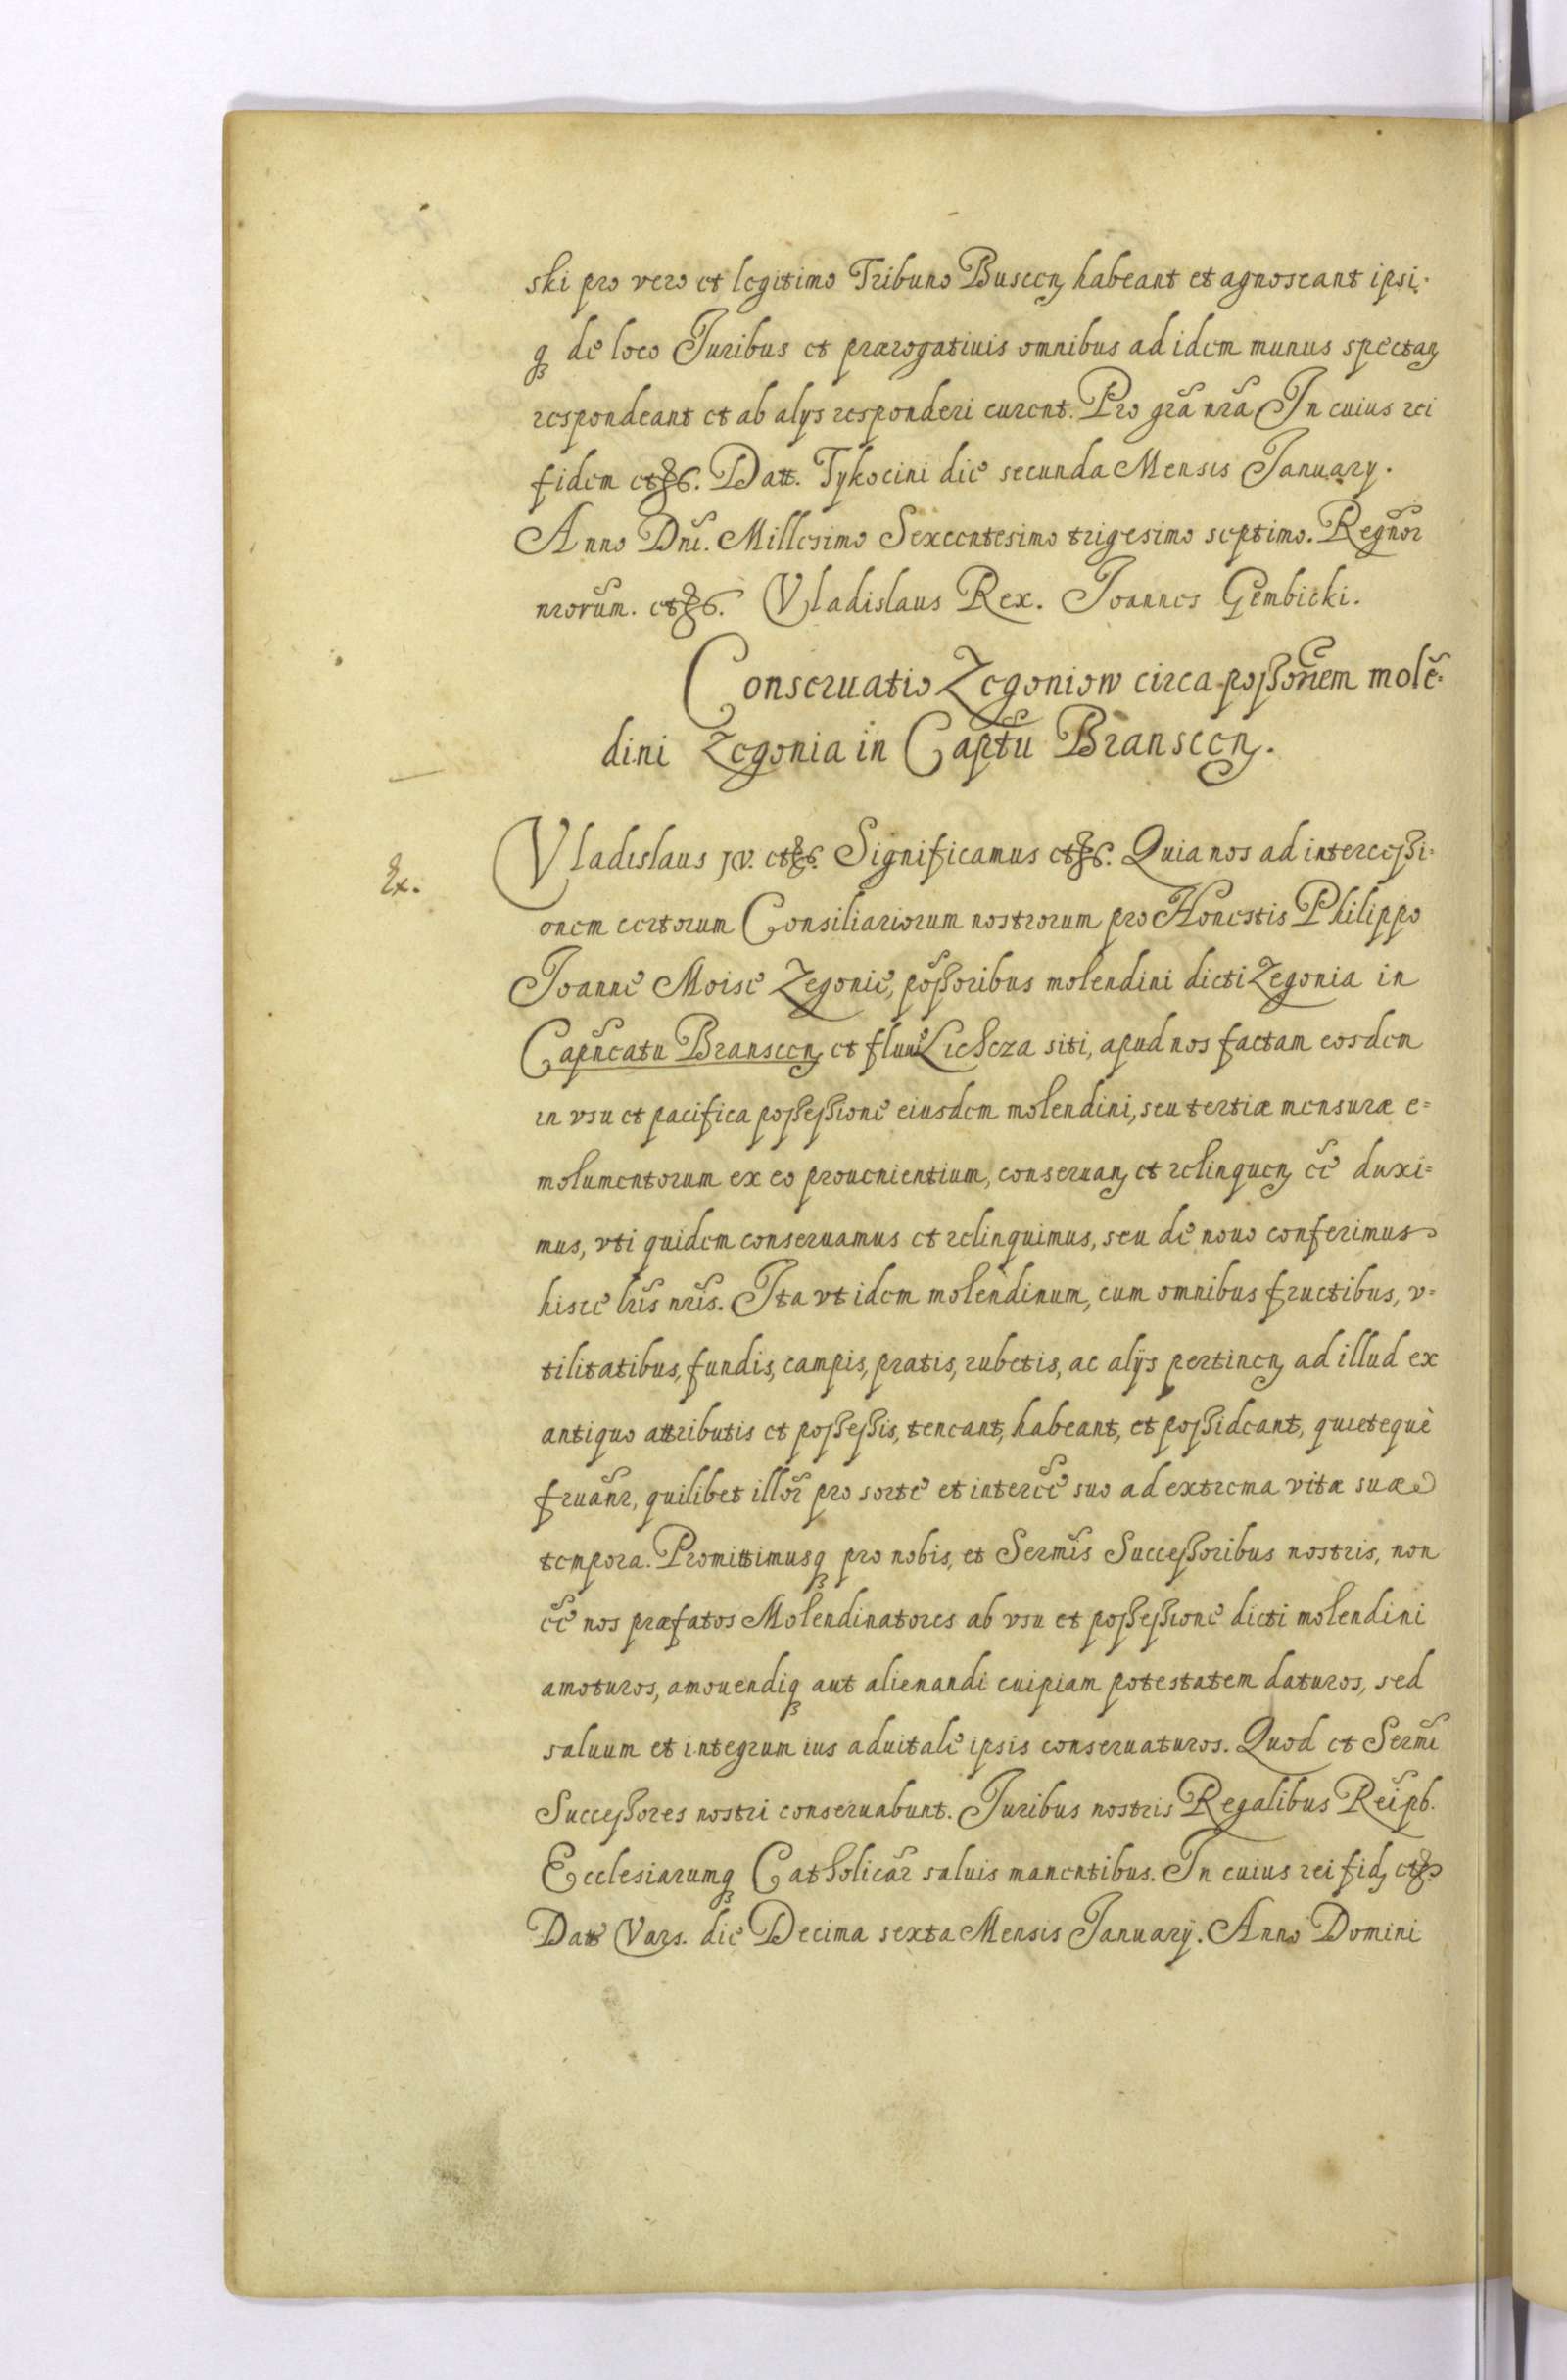 ski pro vero et legitimo Tribuno Buscen habeant et agnoscant ipsi.
q de loco Juribus et prærogatiuis omnibus ad idem munus spectan
respondeant et ab alys responderi curent. Pro gra nra In cuius rei
fidem etc. Datt. Tykocini die secunda Mensis January.
Anno Dni. Millesimo Sexcentesimo trigesimo septimo. Regnor
nrorum. etc. Vladislaus Rex. Joannes Gembicki.
Conseruatio Zegoniow circa possoriem mole-
dini Zegonia in Captu Branscen.
Ex. Vladislaus IV. etc. Significamus etc. Quia nos ad intercessi-
onem certorum Consiliariorum nostrorum pro Honestis Philippo
Joanne Moise Zegonie, possoribus molendini dicti Zegonia in
Capncatu Branscen et fluuˀ Lichcza siti, apud nos factam eosdem
in vsu et pacifica possessione eiusdem molendini, seu tertiæ mensuræ e-
molumentorum ex eo prouenientium, conseruan et relinquen ee duxi-
mus, vti quidem conseruamus et relinquimus, seu de nouo conferimus
hisce lris nris. Ita vt idem molendinum, cum omnibus fructibus, v-
tilitatibus, fundis, campis, pratis, rubetis, ac alijs pertinen ad illud ex
antiquo attributis et possessis, teneant, habeant, et possideant, quietequè
fruanr, quilibet illor pro sorte et interee suo ad extrema vitæ suæ
tempora. Promittimusq pro nobis, et Sermis Successoribus nostris, non
ee nos præfatos Molendinatores ab vsu et possessione dicti molendini
amoturos, amouendiq aut alienandi cuipiam potestatem daturos, sed
saluum et integrum ius aduitale ipsis conseruaturos. Quod et Sermi
Successores nostri conseruabunt. Juribus nostris Regalibus Reipb.
Ecclesiarumq Catholicar saluis manentibus. In cuius rei fid etc.
Datt Vars. die Decima sexta Mensis Januarij. Anno Domini